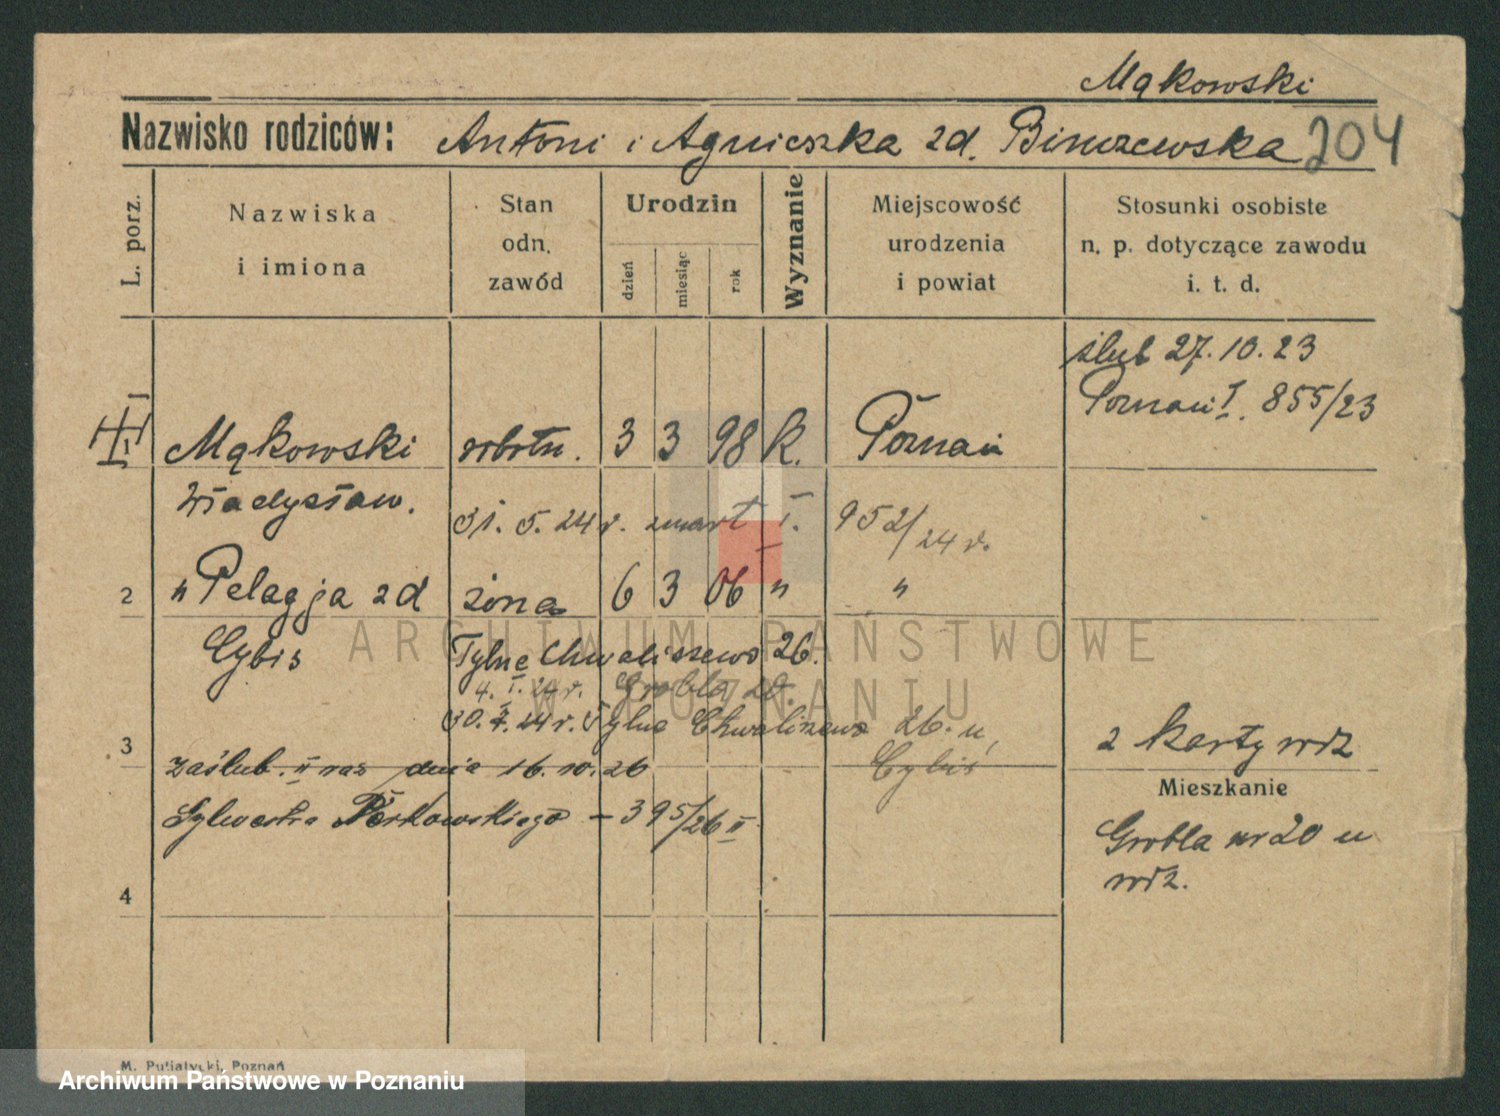 Mąkowski
Nazwisko rodziców: Antoni i Agnieszka zd. 204
L. porz.
Nazwiska
i imiona
Stan
odn.
zawód
Urodzin
dzień
miesiąc
rok
Wyznanie
Miejscowość
urodzenia
i powiat
Stosunki osobiste
n. p. dotyczące zawodu
i. t. d.
ślub 27.10.23
Poznań I. 855/23
Mąkowski robotn. 3 3 98 k. Poznań
Władysław.
31. 5. 24 r. zmarł I. 952/24 r.
2 " Pelagja zd żona 6 3 06 " "
Cybis
Tylne Chwaliszewo 26.
4. I. 24 r. Grobla 20.
30. 24 r. Tylne Chwaliszewo 26. u
Cybiś
3
2 karty rdz
zaślub. II raz dnia 16. 10. 26
Mieszkanie
Sylwestra - 395/26 II
Grobla nr 20 u
rdz.
4
M. Putiatycki, Poznań
ARCHIWUM PAŃSTWOWE
W POZNANIU
Archiwum Państwowe w Poznaniu